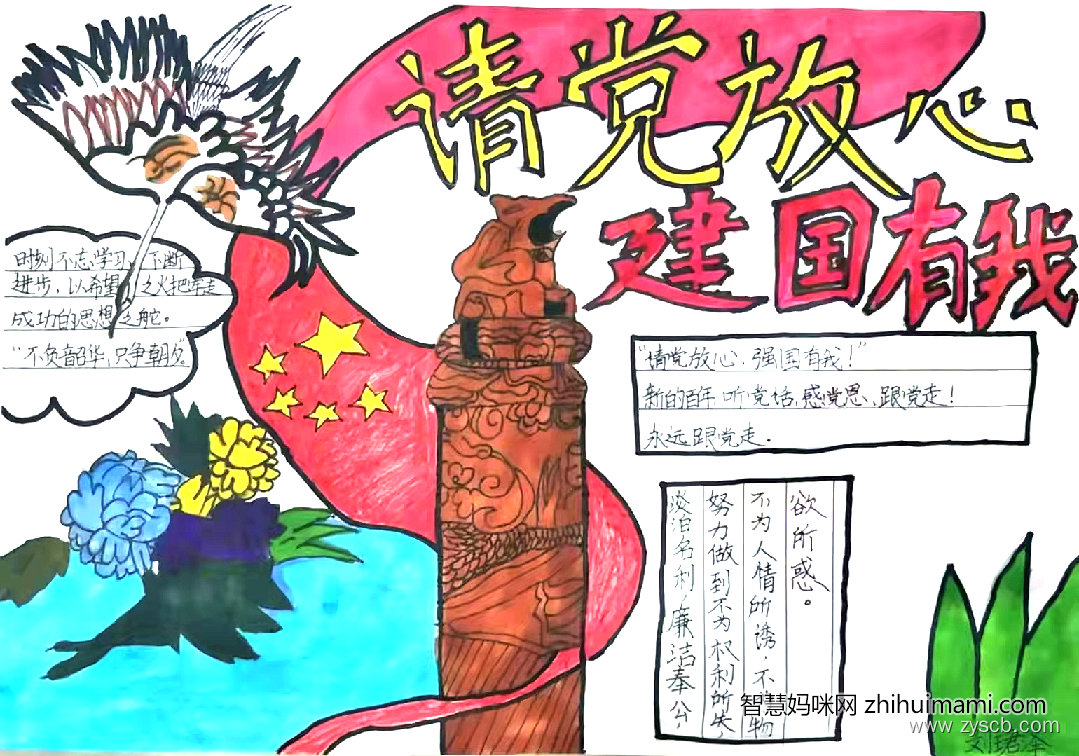 请党放心
建国有我
时刻不忘学习,不断
进步,以希望之火把牵走
成功的思想之舵。
"不负韶华,只争朝夕"
"请党放心,强国有我!"
新的百年,听党话,感党恩,跟党走!
永远跟党走.
欲所惑。
不为人情所诱,不 物
努力做到不为权利所
淡泊名利,廉洁奉公
智慧妈咪网 zhihuimami.com
www.zyscb.com